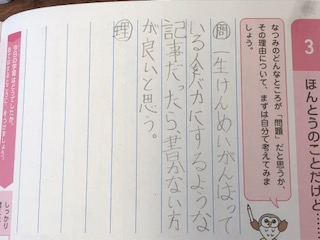 3
ほんとうのことだけど……
なつみのどんなところが「問題」だと思うか、
その理由について、まずは自分で考えてみま
しょう。
問 一生けんめいがんばって
いる人バカにするような
記事だったら、書かない方
が良いと思う。
理
しっかり